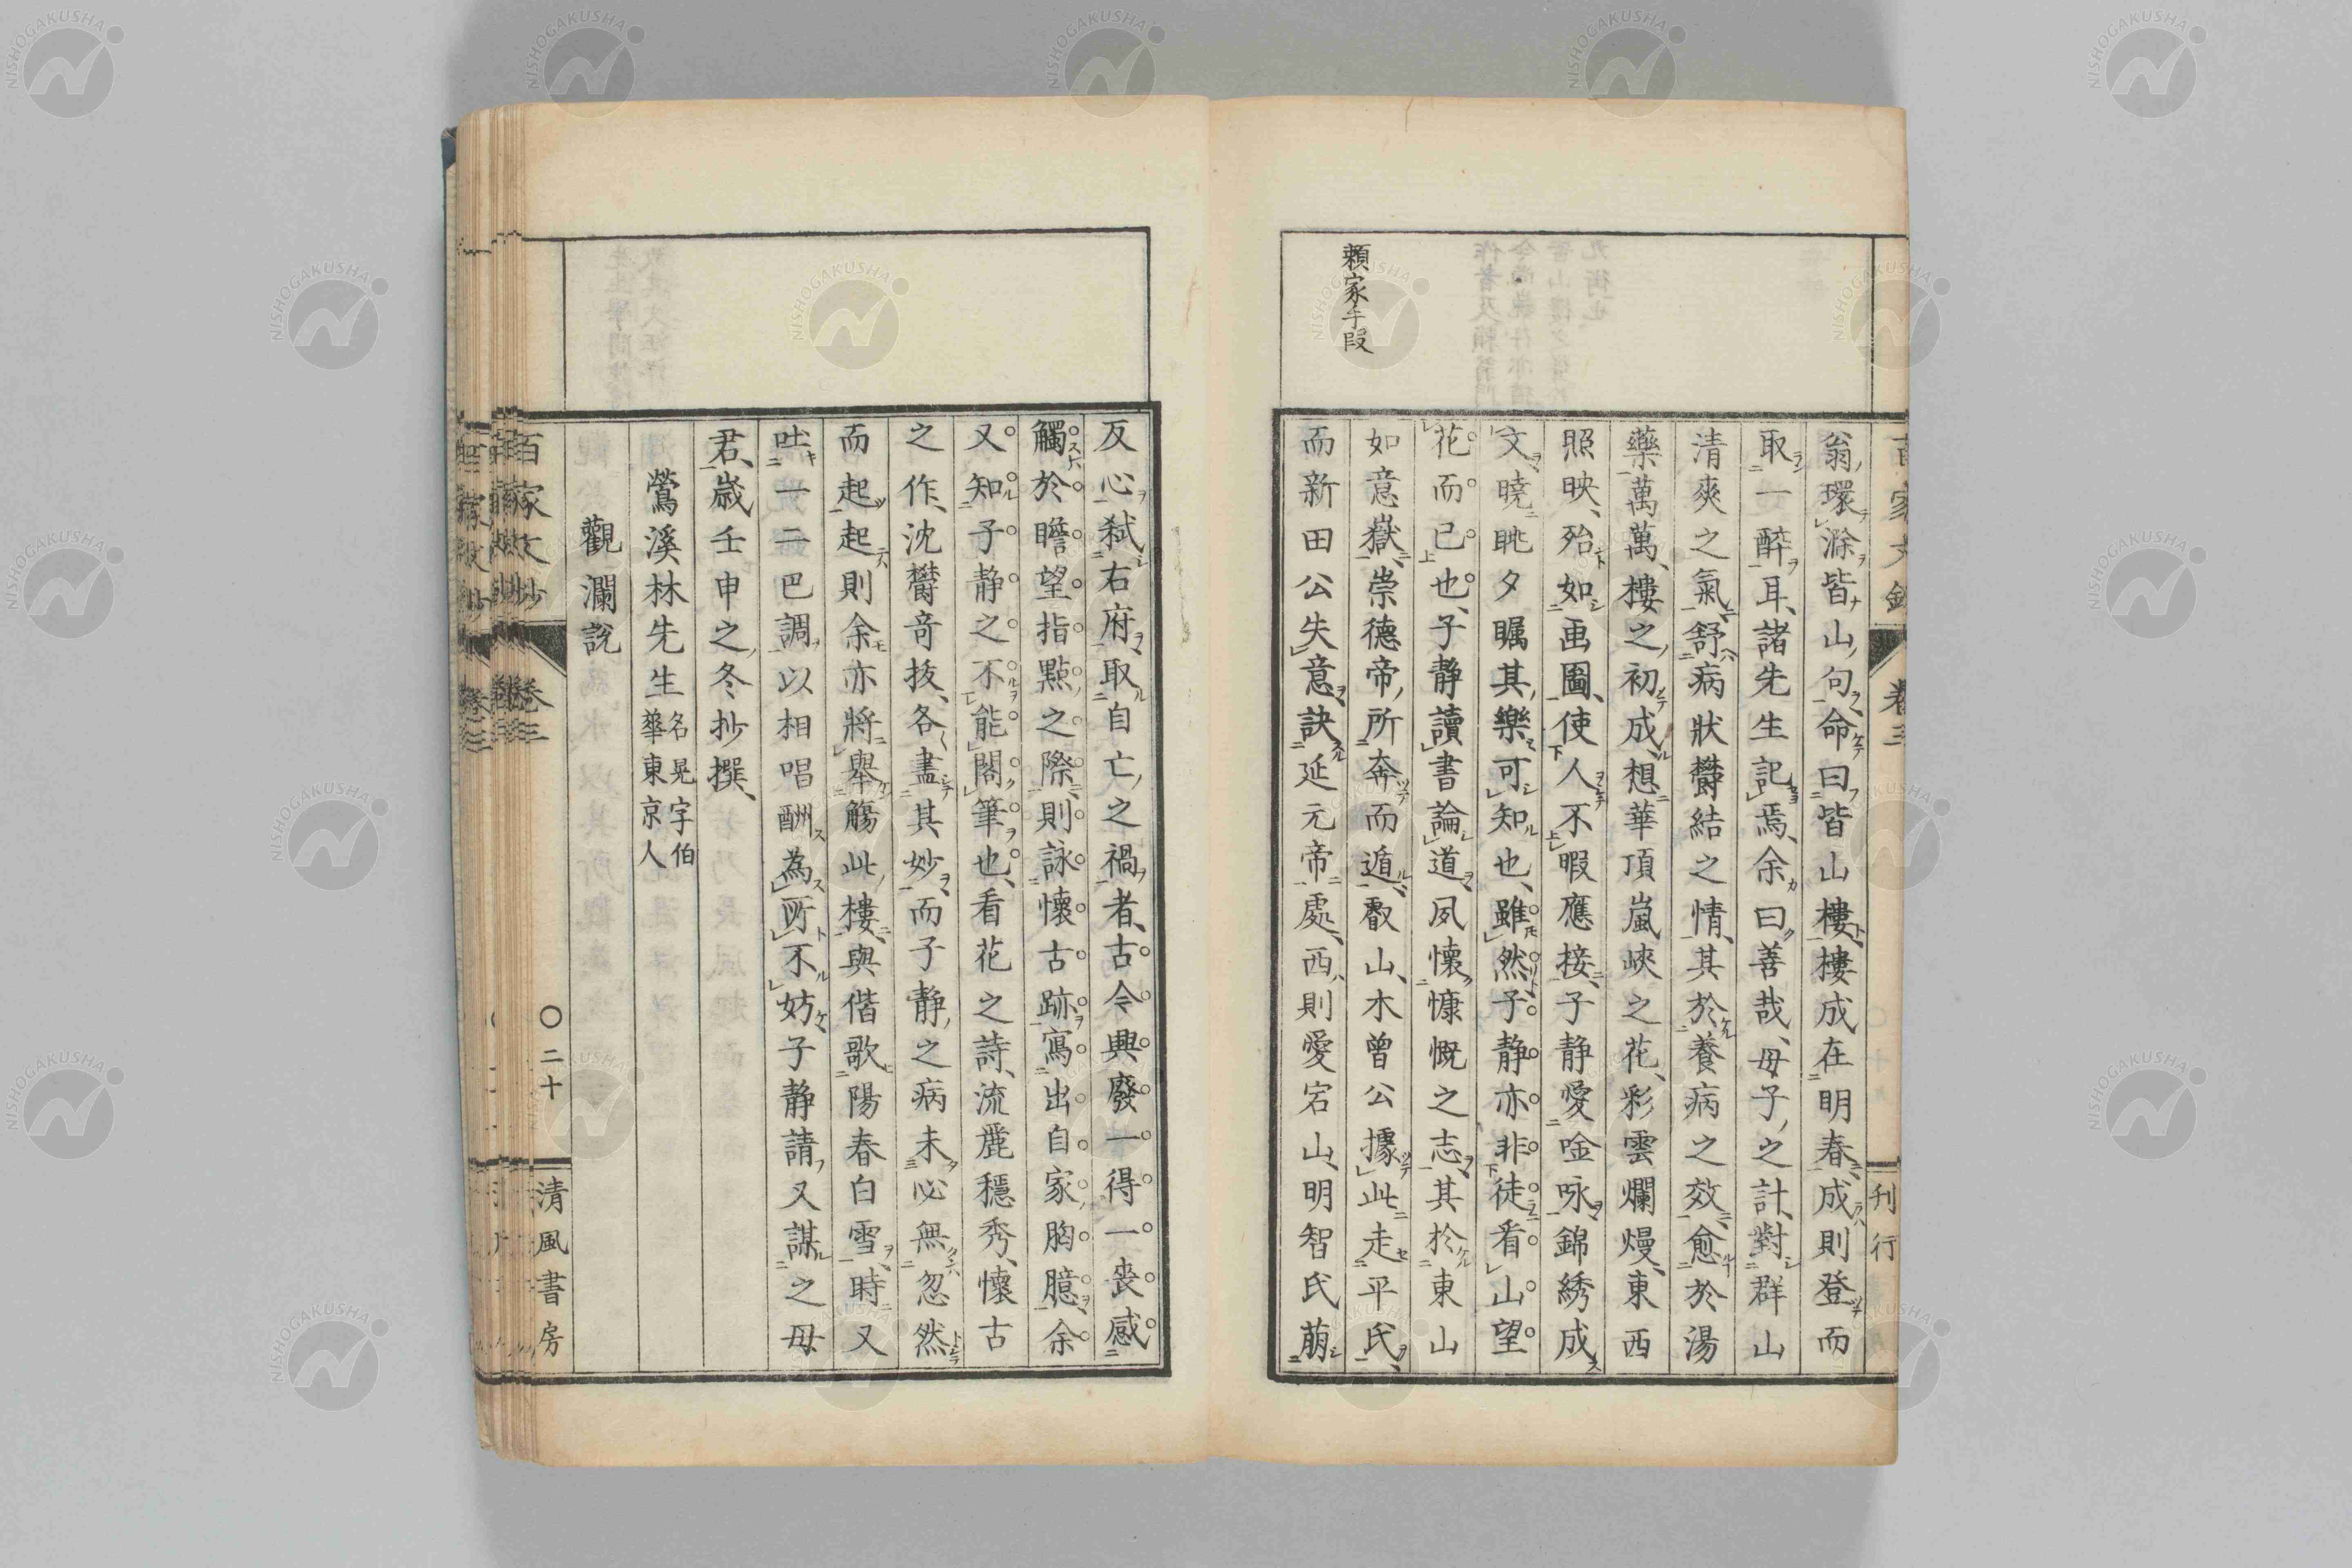 頼家手段
翁環滁皆山句命曰皆山樓樓成在明春成則登而
取一醉耳諸先生記焉余曰善哉母子之計對群山
清爽之氣舒病狀欝結之情其於養病之效愈於湯
藥萬萬樓之初成想華頂嵐峽之花彩雲爛熳東西
照映殆如画圖使人不暇應接子静愛唫咏錦綉成
文曉眺夕矚其樂可知也雖然子静亦非徒看山望
花而已也子静讀書論道夙懷慷慨之志其於東山
如意嶽崇德帝所奔而遁叡山木曾公據此走平氏
而新田公失意訣延元帝處西則愛宕山明智氏萠
反心弑右府取自亡之禍者古今興廢一得一喪感
觸於瞻望指點之際則詠懷古跡寫出自家胸臆余
又知子静之不能閣筆也看花之詩流麗穩秀懷古
之作沈欝奇拔各盡其妙而子静之病未必無忽然
而起起則余亦將舉觴此樓與偕歌陽春白雪時又
吐一二巴調以相唱酬為所不妨子静請又謀之母
君歳壬申之冬抄撰
鶯溪林先生 名晃字伯華東京人
觀瀾説
百家文抄 卷三 〇二十 清風書房
刊行